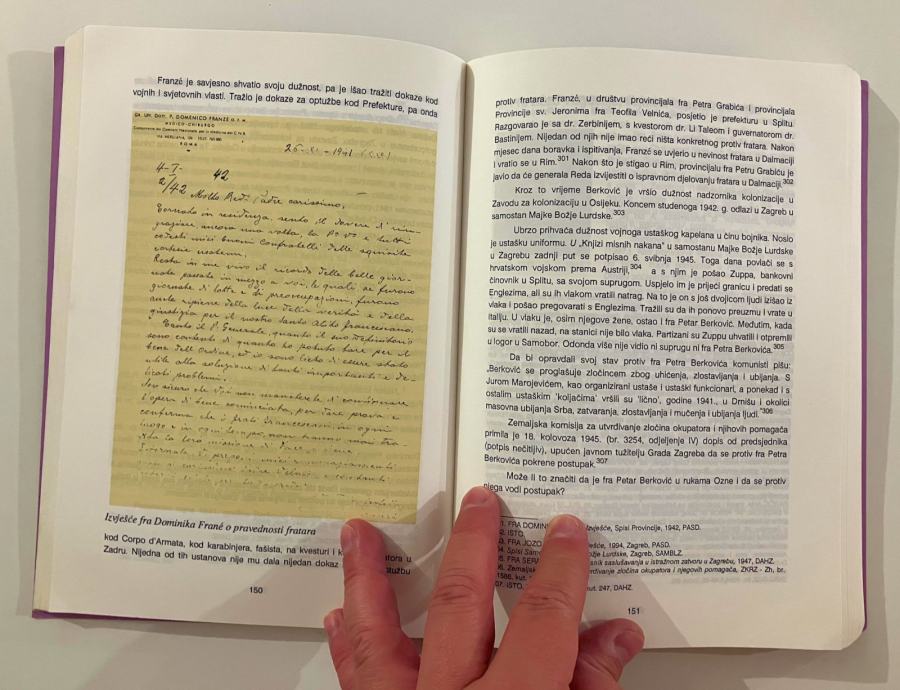 Franzé je savjesno shvatio svoju dužnost, pa je išao tražiti dokaze kod
vojnih i svjetovnih vlasti. Tražio je dokaze za optužbe kod Prefekture, pa onda
GR. UFF. DOTT. P. DOMENICO FRANZÈ O. F. M.
MEDICO-CHIRURGO
ROMA
26-XI-1941
4-I-
2/42
42
Molto Rev. Padre carissimo,
Tornato in residenza, sento il dovere di rin-
graziare, ancora una volta, la P. V. e tutti
cotesti miei buoni Confratelli delle squisite
cortesie usatemi.
Resta in me vivo il ricordo delle belle gior-
nate passate in mezzo a voi, le quali, se furono
giornate di lotte e di preoccupazioni, furono
anche ripiene della luce della verità e della
giustizia per il nostro santo abito francescano.
Tanto il P. Generale, quanto il suo Definitorio
sono contenti di quanto ho potuto fare per il
bene dell'Ordine, ed io sono lieto di essere stato
utile alla soluzione di tanti importanti e de-
licati problemi.
Son sicuro che voi non mancherete di continuare
l'opera di bene cominciata, per dare prova e
conferma che i frati francescani, in ogni
luogo e in ogni tempo, non hanno mai tra-
dito la loro missione di pace e bene
Izvješće fra Dominika Frané o pravednosti fratara
kod Corpo d'Armata, kod karabinjera, fašista, na kvesturi i k
Zadru. Nijedna od tih ustanova nije mu dala nijedan dokaz
150
protiv fratara. Franzé, u društvu provincijala fra Petra Grabića i provincijala
Provincije sv. Jeronima fra Teofila Velnića, posjetio je prefekturu u Splitu.
Razgovarao je sa dr. Zerbinijem, s kvestorom dr. Li Taleom i guvernatorom dr.
Bastinijem. Nijedan od njih nije imao reći ništa konkretnog protiv fratara. Nakon
mjesec dana boravka i ispitivanja, Franzé se uvjerio u nevinost fratara u Dalmaciji
i vratio se u Rim.301 Nakon što je stigao u Rim, provincijalu fra Petru Grabiću je
javio da će generala Reda izvijestiti o ispravnom djelovanju fratara u Dalmaciji.302
Kroz to vrijeme Berković je vršio dužnost nadzornika kolonizacije u
Zavodu za kolonizaciju u Osijeku. Koncem studenoga 1942. g. odlazi u Zagreb u
samostan Majke Božje Lurdske.303
Ubrzo prihvaća dužnost vojnoga ustaškog kapelana u činu bojnika. Nosio
je ustašku uniformu. U „Knjizi misnih nakana" u samostanu Majke Božje Lurdske
u Zagrebu zadnji put se potpisao 6. svibnja 1945. Toga dana povlači se s
hrvatskom vojskom prema Austriji,304 a s njim je pošao Zuppa, bankovni
činovnik u Splitu, sa svojom suprugom. Uspjelo im je prijeći granicu i predati se
Englezima, ali su ih vlakom vratili natrag. Na to je on s još dvojicom ljudi izišao iz
vlaka i pošao pregovarati s Englezima. Tražili su da ih ponovo preuzmu i vrate u
Italiju. U vlaku je, osim njegove žene, ostao i fra Petar Berković. Međutim, kada
su se vratili nazad, na stanici nije bilo vlaka. Partizani su Zuppu uhvatili i otpremili
u logor u Samobor. Odonda više nije vidio ni suprugu ni fra Petra Berkovića.305
Da bi opravdali svoj stav protiv fra Petra Berkovića komunisti pišu:
„Berković se proglašuje zločincem zbog uhićenja, zlostavljanja i ubijanja. S
Jurom Marojevićem, kao organizirani ustaše i ustaški funkcionari, a ponekad i s
ostalim ustaškim 'koljačima' vršili su 'lično', godine 1941., u Drnišu i okolici
masovna ubijanja Srba, zatvaranja, zlostavljanja i mučenja i ubijanja ljudi."306
Zemaljska komisija za utvrđivanje zločina okupatora i njihovih pomagača
primila je 18. kolovoza 1945. (br. 3254, odjeljenje IV) dopis od predsjednika
(potpis nečitljiv), upućen javnom tužitelju Grada Zagreba da se protiv fra Petra
Berkovića pokrene postupak.307
Može li to značiti da je fra Petar Berković u rukama Ozne i da se protiv
njega vodi postupak?
1. FRA DOMIN Izvješće, Spisi Provincije, 1942, PASD.
2. ISTO.
03. FRA JOZO 1994, Zagreb, PASD.
04. Spisi Samo Božje Lurdske, Zagreb, SAMBLZ.
05. FRA SERA saslušavanja u istražnom zatvoru u Zagrebu, 1947, DAHZ.
06. Zemaljsk zločina okupatora i njegovih pomagača, ZKRZ - Zh, br.
1586, kut.
07. ISTO, kut. 247, DAHZ.
151